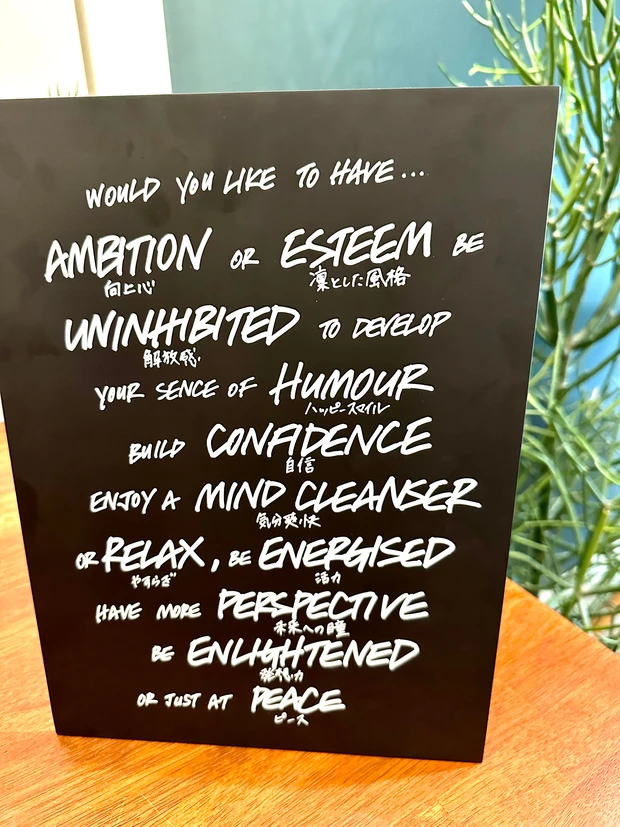 WOULD YOU LIKE TO HAVE...
AMBITION OR ESTEEM BE
向上心 凛とした風格
UNINHIBITED TO DEVELOP
解放感
YOUR SENCE OF HUMOUR
ハッピースマイル
BUILD CONFIDENCE
自信
ENJOY A MIND CLEANSER
気分爽快
OR RELAX, BE ENERGISED
やすらぎ 活力
HAVE MORE PERSPECTIVE
未来への瞳
BE ENLIGHTENED
発想力
OR JUST AT PEACE
ピース